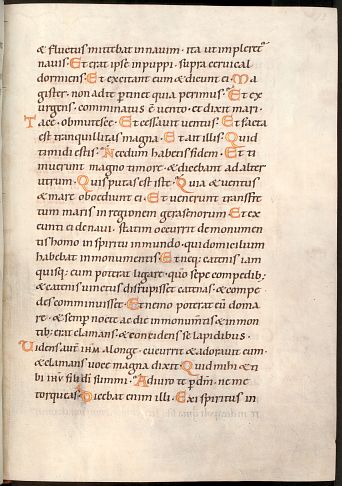 & fluctus mittebat in navim · ita ut impleret᷑
navis · Et erat ipse in puppi · supra cervical
dormiens · Et excitant eum & dicunt ei · Ma
gister · non ad te ptinet quia perimus · Et ex
urgens · comminatus ē vento · et dixit mari ·
Tace · obmutesce · Et cessavit ventus · Et facta
est tranquillitas magna · Et ait illis · Quid
timidi estis · Necdum habetis fidem · Et ti
muerunt magno timore · & dicebant ad alter
utrum · Quis putas est iste · Quia & ventus
& mare obœdiunt ei · Et venerunt trans fre
tum maris in regionem gerasenorum · Et ex
eunti ei de navi · statim occurrit de monumen
tis homo in spiritu inmundo · qui domicilium
habebat in monumentis · Et neq; catenis iam
quisq; eum poterat ligare · quō sepe compedib;
& catenis vinctus disrupisset catenas · & compe
des comminuisset · Et nemo poterat eū doma
re · & semp nocte ac die in monumtis & in mon
tib; erat clamans · & concidens se lapidibus ·
Videns aut ihm a longe · cucurrit & adoravit eum ·
& clamans voce magna dixit · Quid mihi & ti
bi ihu fili di summi · Adiuro te p dm · ne me
torqueas · Dicebat enim illi · Exi spiritus in